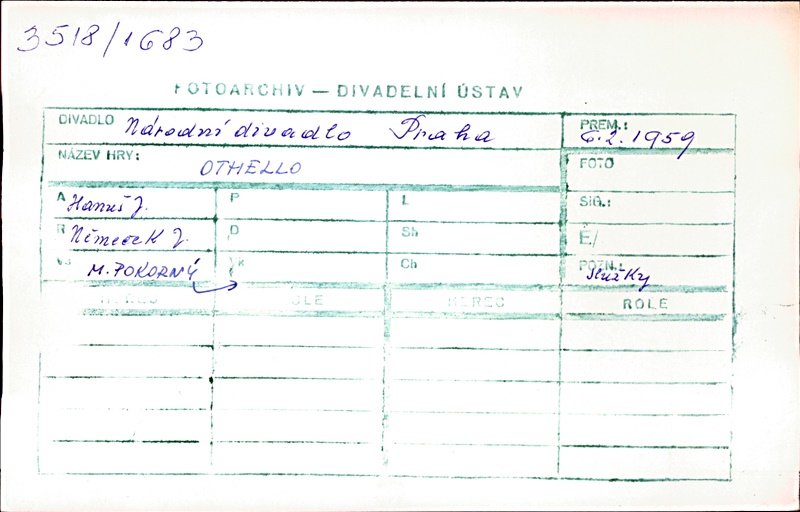 3518/1683
FOTOARCHIV — DIVADELNÍ ÚSTAV
DIVADLO Národní divadlo Praha PREM.: 6.2.1959
NÁZEV HRY: OTHELLO FOTO
A Hanuš J. P L SIG.:
R Němeček J. D Sh Č/
M. POKORNÝ Vk Ch POZN.:
HEREC ROLE HEREC ROLE